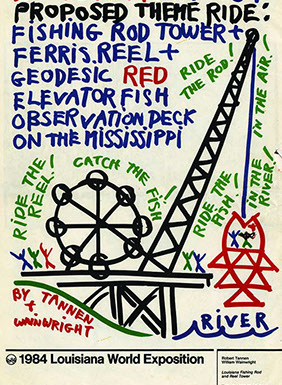 PROPOSED THEME RIDE:
FISHING ROD TOWER +
FERRIS.REEL +
GEODESIC RED
ELEVATOR FISH
OBSERVATION DECK
ON THE MISSISSIPPI
RIDE
THE ROD!
IN THE AIR.
RIDE THE
REEL!
CATCH THE FISH!
RIDE THE
FISH!
IN THE
RIVER!
BY TANNEN
+
WAINWRIGHT
RIVER
1984 Louisiana World Exposition
Robert Tannen
William Wainwright
Louisiana Fishing Rod
and Reel Tower